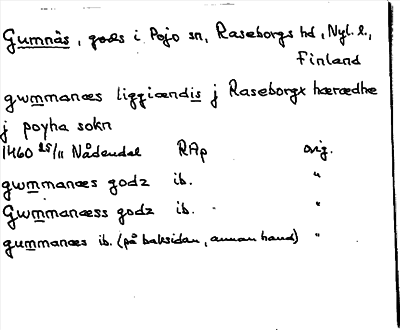 Gumnäs, gods i Pojo sn, Raseborgs hd, Nyl. l.,
Finland
gwmmanæs liggiændis j Raseborgx hæredhe
j poyha sokn
1460 25/11 Nådendal RAp orig.
gwmmanæs godz ib. "
Gwmmanæss godz ib. "
gummanæs ib. (på baksidan, annan hand) "